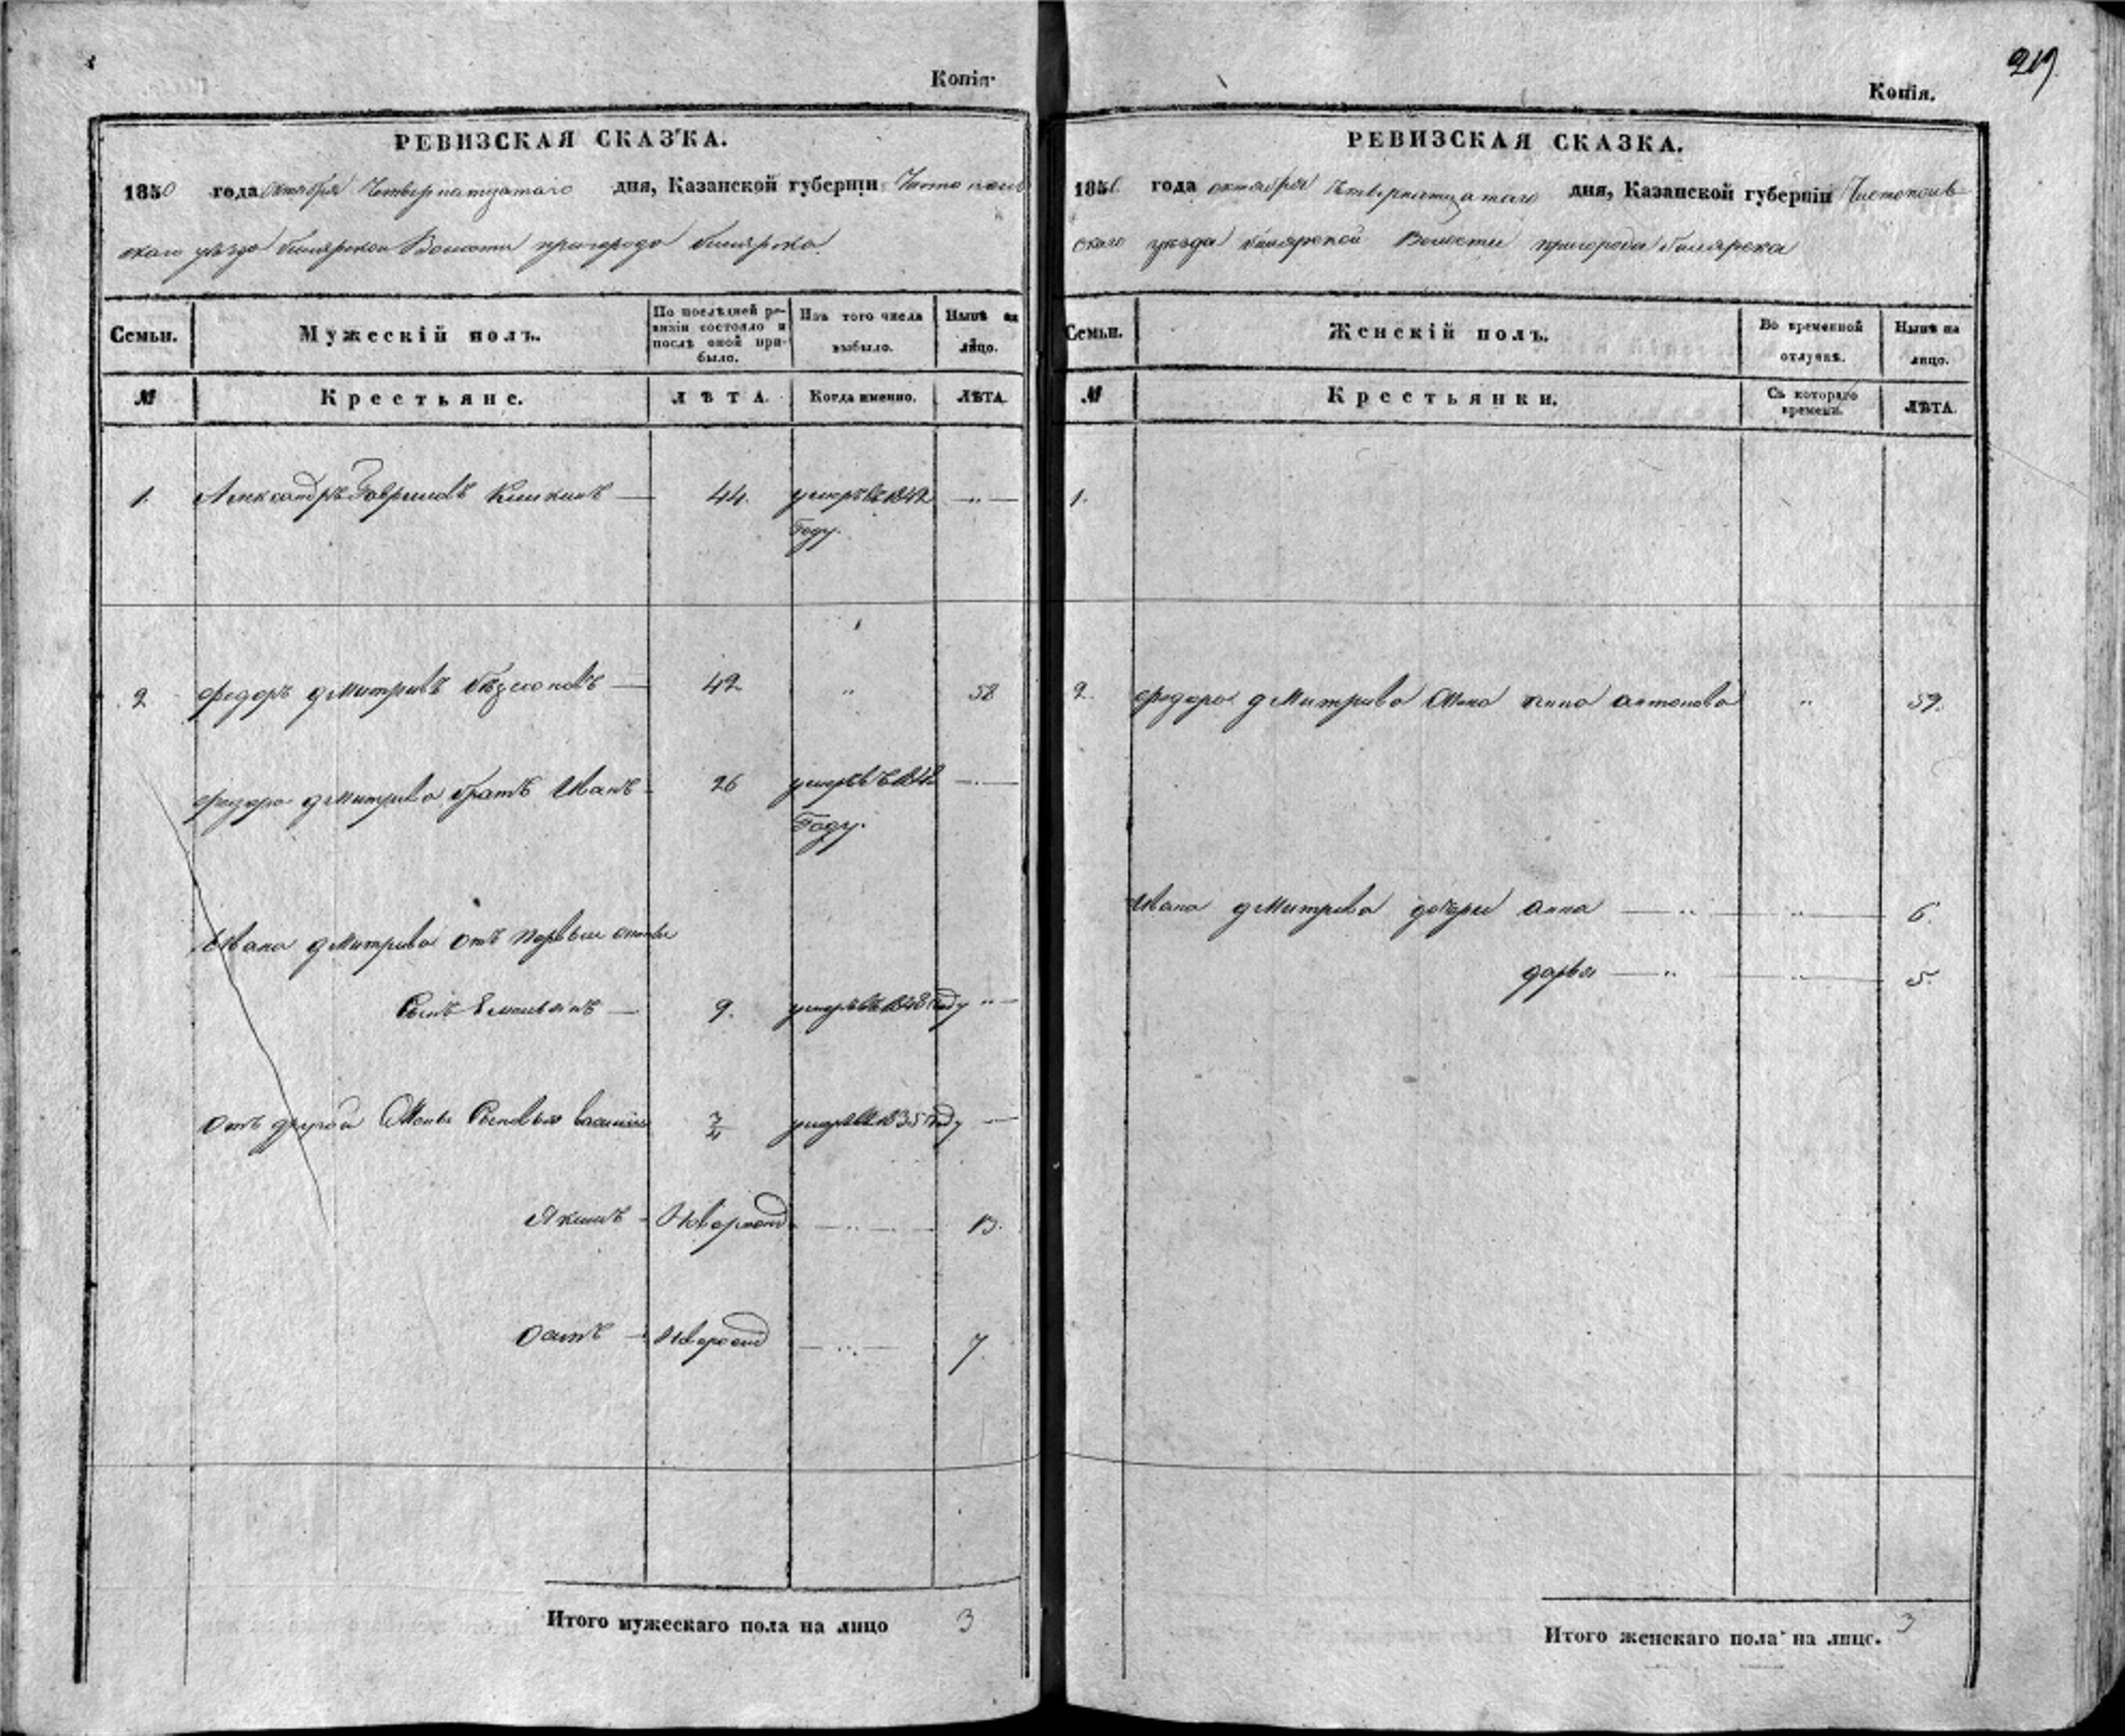 Копія.
РЕВИЗСКАЯ СКАЗКА.
1850 года октября четырнатцатаго дня, Казанской губерніи Чистополь
скаго уѣзда билярской Волости пригорода билярска
Семьи.
Мужескій полъ.
По послѣдней ре-
визіи состояло и
послѣ оной при-
было.
Изъ того числа
выбыло.
Нынѣ на
лицо.
№
Крестьяне.
ЛѢТА.
Когда именно.
ЛѢТА.
1. Александръ Гавриловъ 44. умеръ въ 1842
Году.
2 федоръ дмитривъ 42 58
федора дмитрива братъ Иванъ 26 умеръ въ
Году.
Ивана дмитрива отъ первые
Сынъ 9. умеръ въ 1848 Году
отъ другой жены Сыновья 3/4 умеръ въ 1835 Году
Якимъ 13.
Осипъ 7.
Итого мужескаго пола на лицо 3
219
Копія.
РЕВИЗСКАЯ СКАЗКА.
1850 года октября четырнатцатаго дня, Казанской губерніи Чистополь
скаго уѣзда билярской Волости пригорода билярска
Семьи.
Женскій полъ.
Во временной
отлучкѣ.
Нынѣ на
лицо.
№
Крестьянки.
Съ котораго
времени.
ЛѢТА.
1.
2. федора дмитрива жена антонова 59.
Ивана дмитрива дочери анна 6.
дарья 5.
Итого женскаго пола на лицо. 3